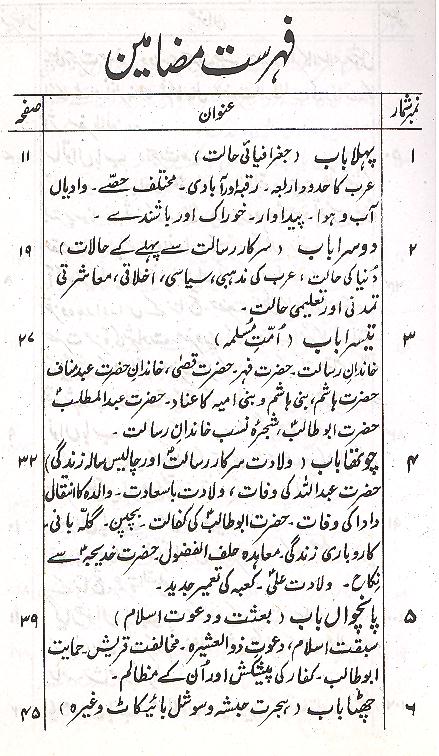 فہرست مضامین
نمبر شمار عنوان صفحہ
۱ پہلا باب ( جغرافیائی حالت ) ۱۱
عرب کا حدود اربعہ۔ رقبہ اور آبادی۔ مختلف حصّے۔ وادیاں
آب و ہوا۔ پیداوار۔ خوراک اور باشندے۔
۲ دوسرا باب ( سرکار رسالت سے پہلے کے حالات ) ۱۹
دُنیا کی حالت، عرب کی مذہبی، سیاسی، اخلاقی، معاشرتی
تمدنی اور تعلیمی حالت۔
۳ تیسرا باب ( اُمّتِ مُسلمہ ) ۲۷
خاندانِ رسالت۔ حضرت فہر۔ حضرت قصَی، خاندانِ حضرت عبد مناف
حضرت ہاشم، بنی ہاشم و بنی امیہ کا عناد۔ حضرت عبدالمطلبؑ
حضرت ابوطالبؑ، شجرۂ نسب خاندانِ رسالت۔
۴ چوتھا باب ( ولادت سرکار رسالتؐ اور چالیس سالہ زندگی ) ۳۲
حضرت عبداللہ کی وفات، ولادت باسعادت۔ والدہ کا انتقال
دادا کی وفات۔ حضرت ابوطالبؑ کی کفالت۔ بچپن۔ گلّہ بانی۔
کاروباری زندگی۔ معاہدہ حلف الفضول۔ حضرت خدیجہؑ سے
نکاح۔ ولادت علیؑ۔ کعبہ کی تعمیر جدید۔
۵ پانچواں باب ( بعثت و دعوت اسلام ) ۳۹
سبقت اسلام، دعوت ذوالعشیرہ۔ مخالفت قریش۔ حمایت
ابوطالب۔ کفار کی پیشکش اور اُن کے مظالم۔
۶ چھٹا باب ( ہجرت حبشہ و سوشل بائیکاٹ وغیرہ ) ۴۵